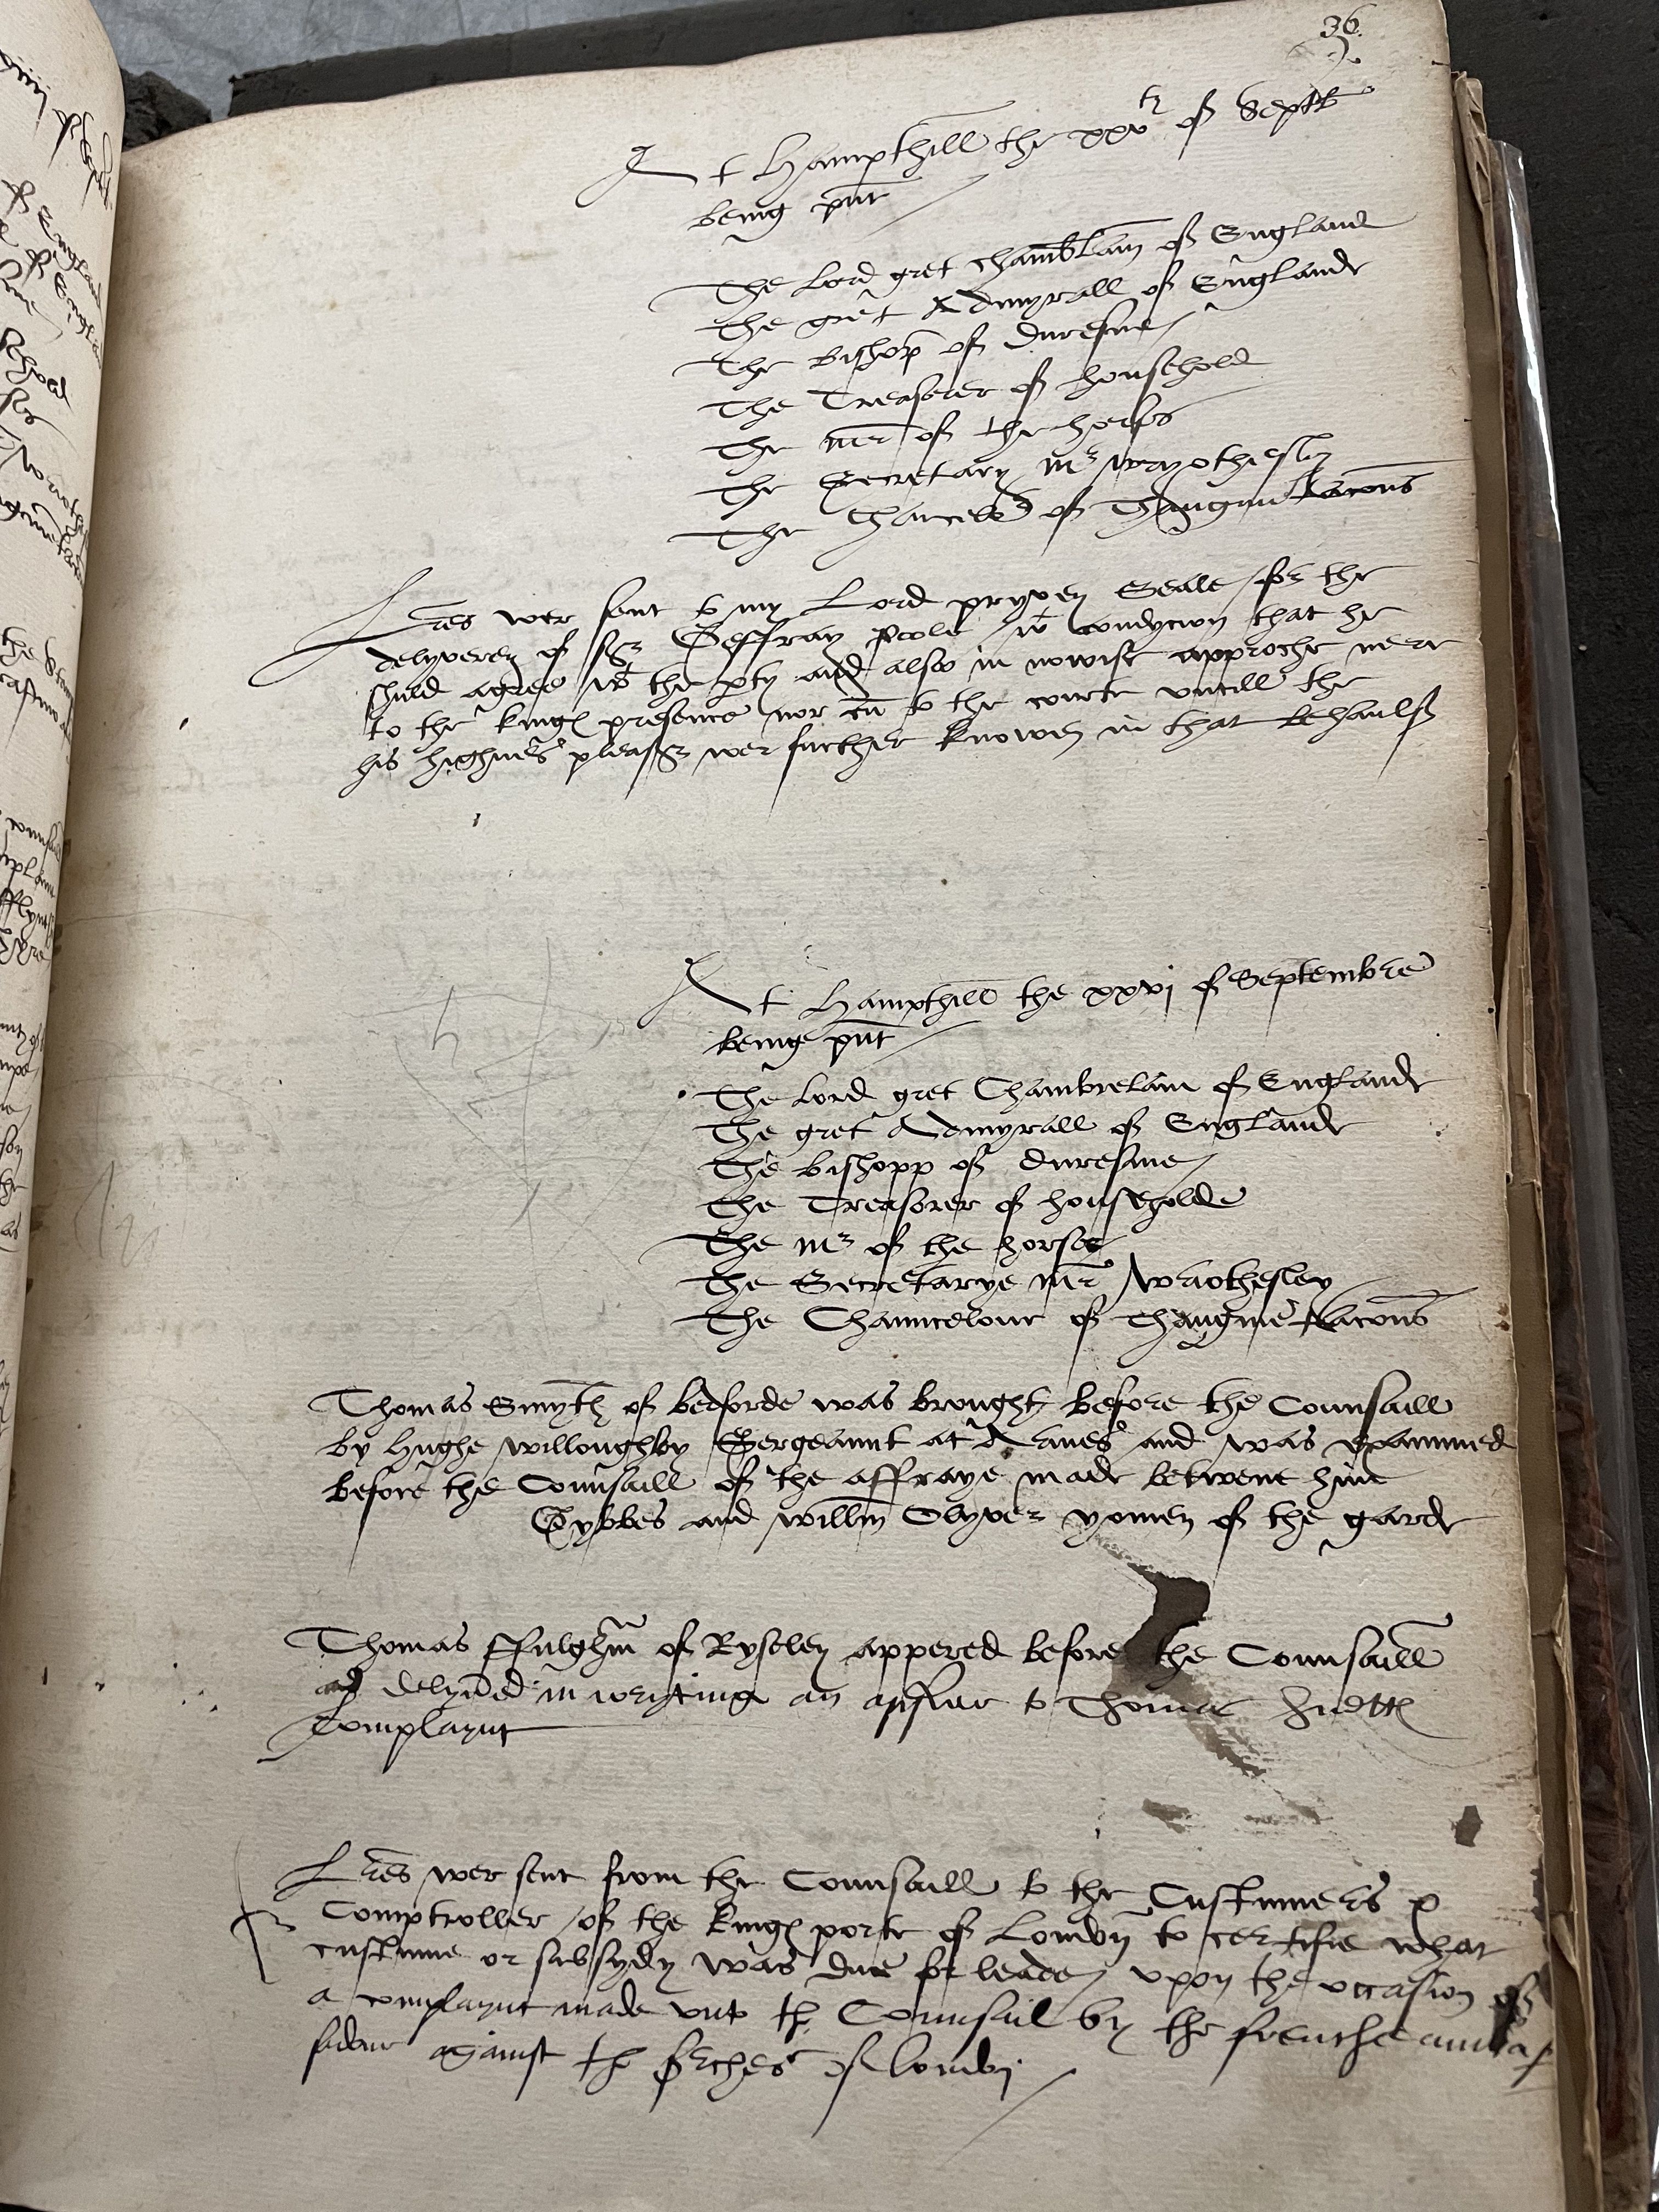 36
At Hampthill the xxvth of Septb
being pnt
The Lord gret Chamblain of England
The gret Admyrall of Englande
The Bishop of Duresme
The Treasorer of household
The mr of the horses
The Secretary Mr Wryothesley
The Chancelor of Thaugmentacons
Lres wer sent to my Lord pryvey Seale for the
delyverey of Sr Geffray Poole wt condycion that he
shuld agree wt the pty and also in nowise approche nere
to the kings presence nor cū to the courte untill the
his highnes pleasr wer further knowen in that behaulf
At Hampthill the xxvj of Septembre
beinge pnt
The Lord gret Chambrelain of Englande
The gret Admyrall of Englande
The Bishopp of Duresme
The Treasorer of householde
The Mr of the horses
The Secretarye Mr Wriothesley
The Chauncelour of Thaugmētacons
Thomas Smyth of Bedforde was brought before the Counsaill
by Hughe Willoughby Sergeaunt at Armes and was examined
before the Counsaill of the affraye made betwene him
Gybbes and Willm Olyver yomen of the garde
Thomas ffulghm of Rysley appered before the Counsaill
and delyved in wryting an answer to Thomas
complaynt
Lres wer sent from the Counsaill to the Custumers &
Comptroller of the kings porte of London to certifie what
custume or subsydy was due for leade upon the occasion of
a complaynt made unto the Counsail by the frenche ambas
sadour against the serches of London